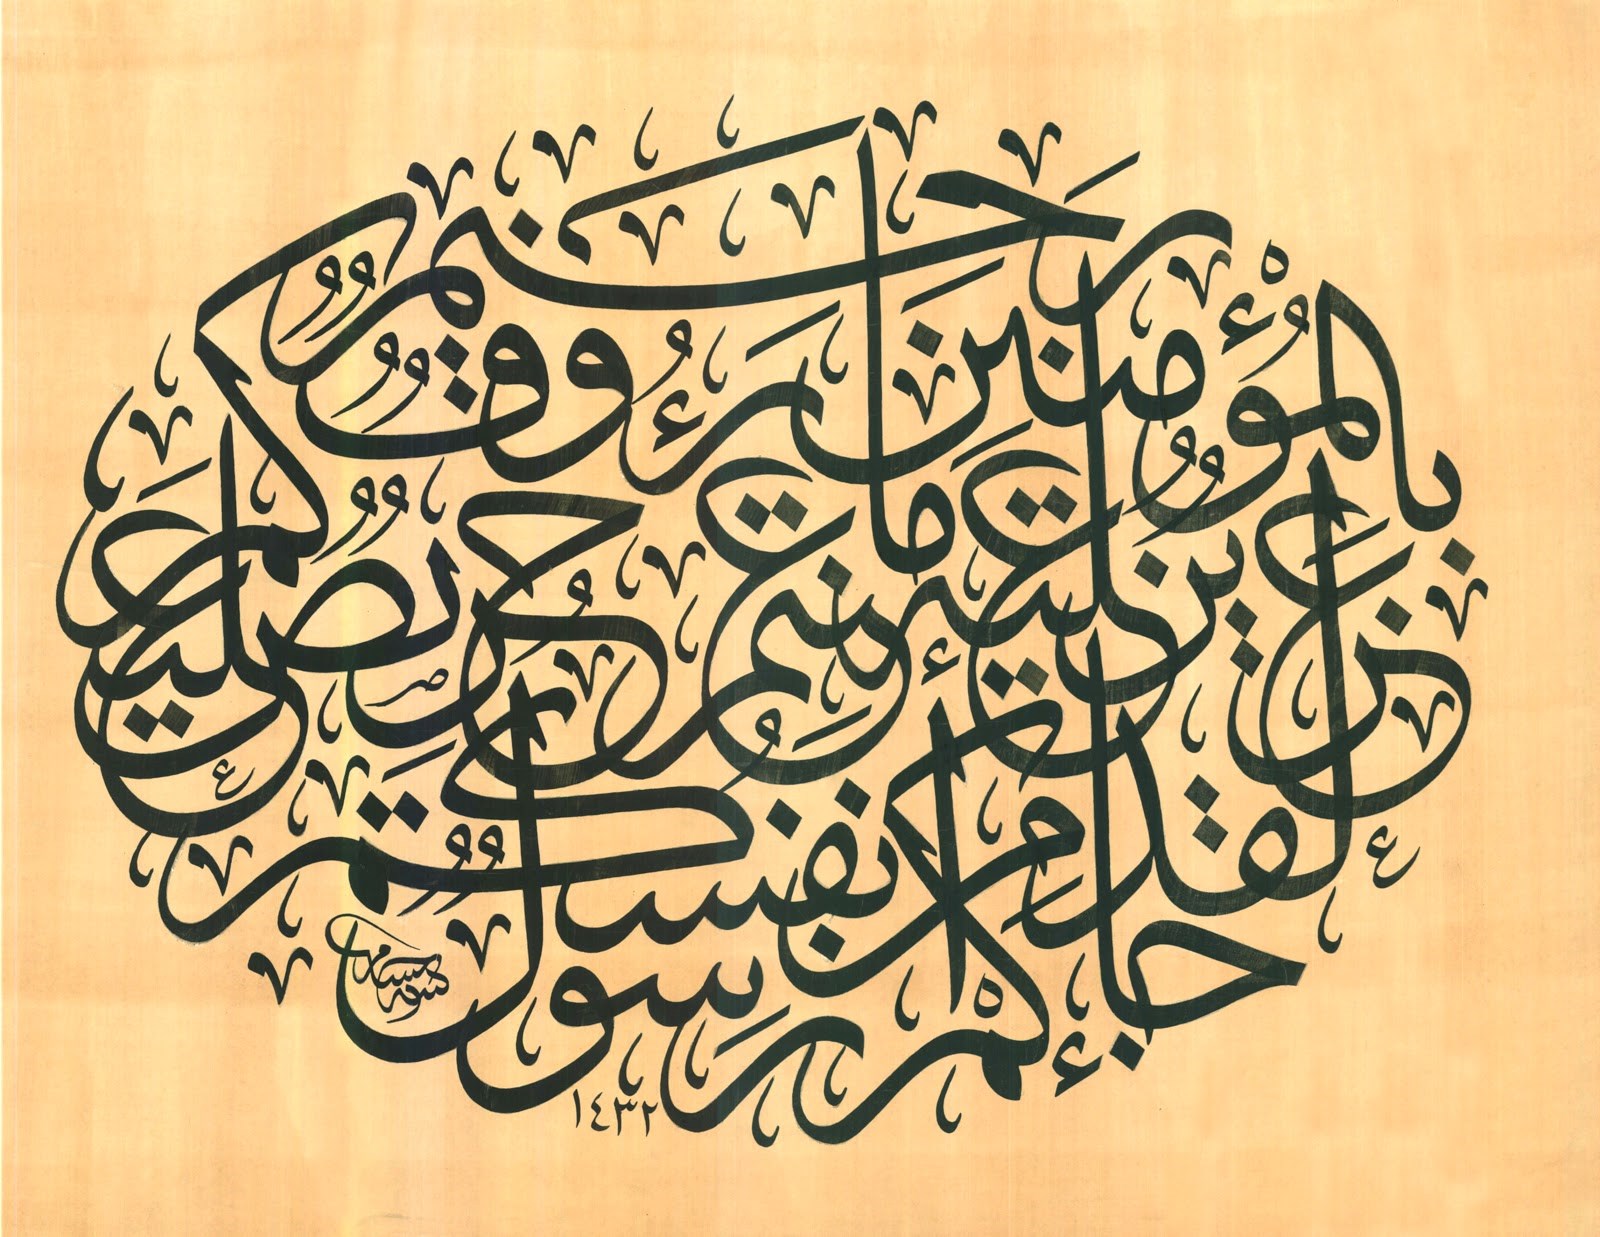 لقد جاءكم رسول من أنفسكم
عزيز عليه ما عنتم حريص عليكم
بالمؤمنين رءوف رحيم
١٤٣٢